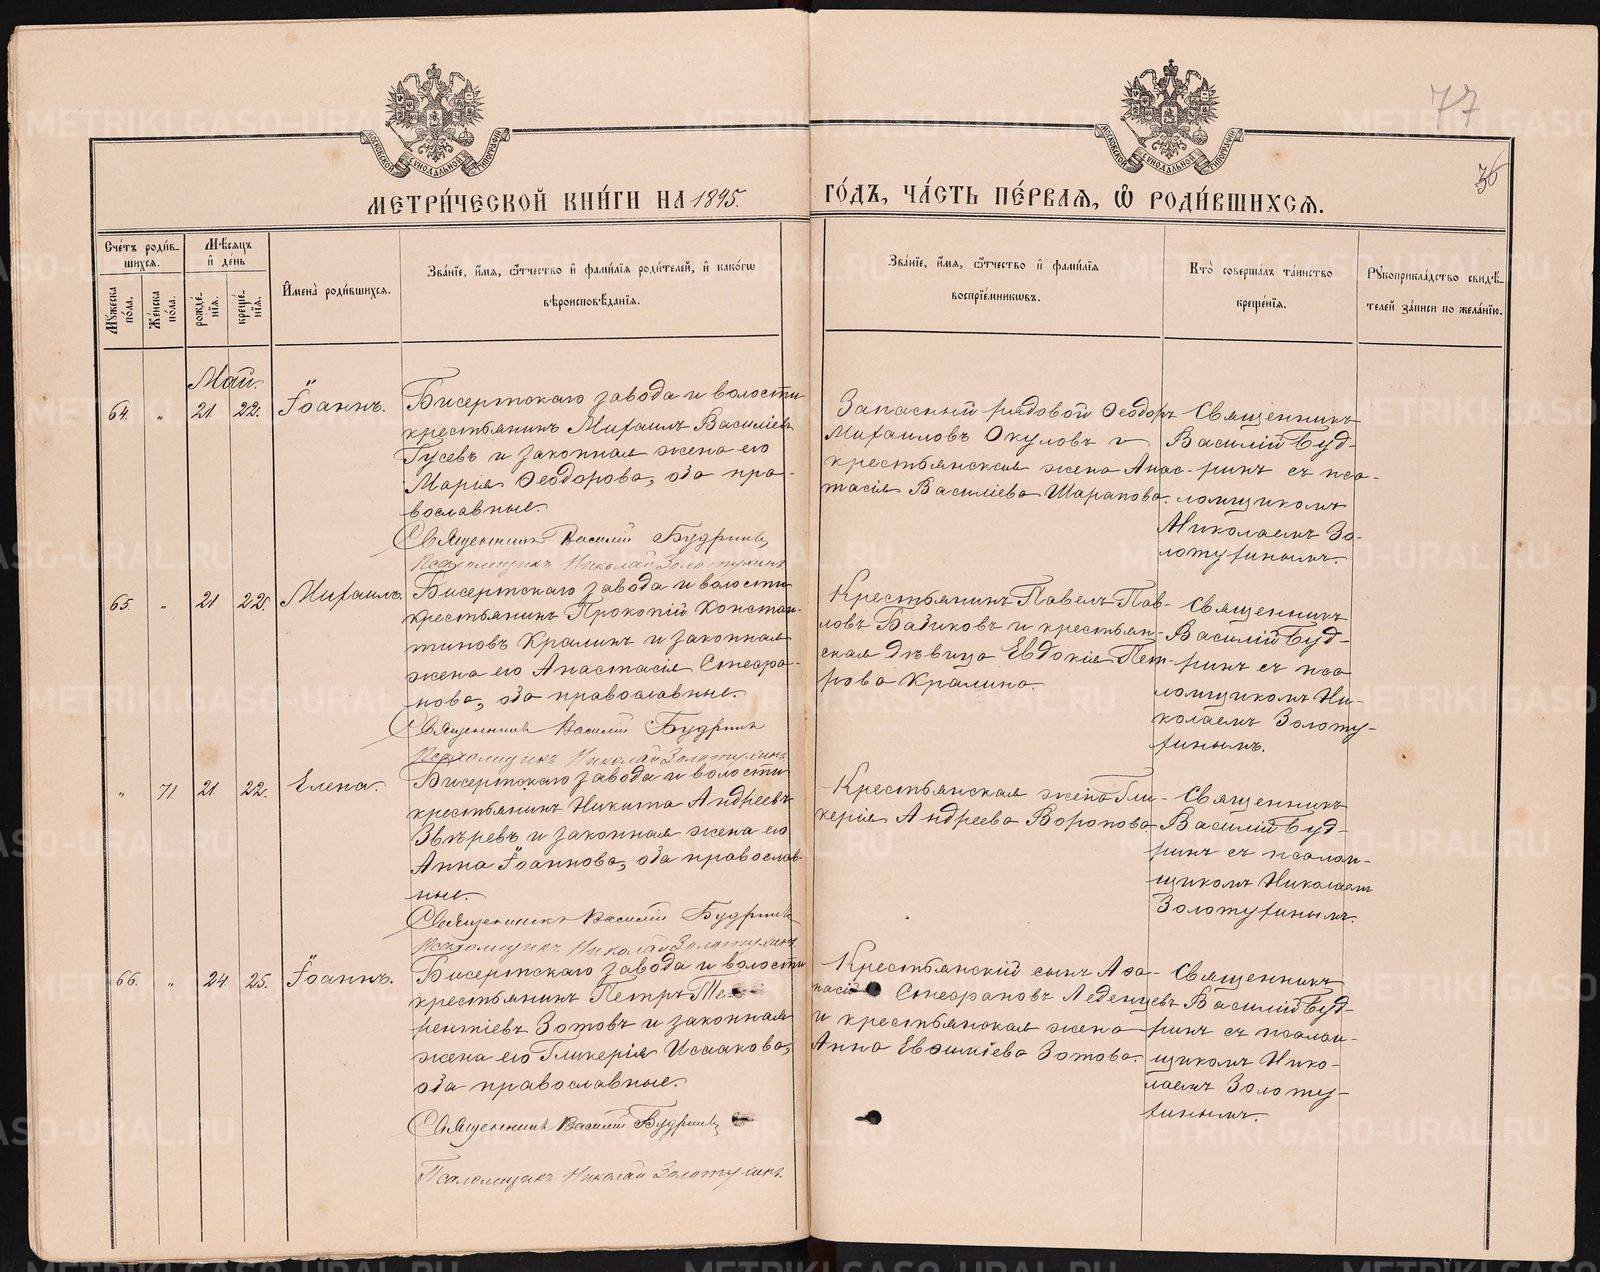 77
36
МЕТРИ́ЧЕСКОЙ КНИ́ГИ НА 1895. ГО́ДЪ, ЧА́СТЬ ПЕ́РВАЯ, Ѡ РОДИ́ВШИХСЯ.
Сче́тъ роди́в-
шихся.
Мѣ́сяцъ
и҆ де́нь
Мꙋ́жеска по́ла.
Же́нска по́ла.
рожде́-
нїя.
креще́-
нїя.
И҆мена̀ роди́вшихся.
Зва́нїе, и҆́мя, ѻ҆́тчество и҆ фами́лїя роди́телей, и҆ како́гѡ
вѣроисповѣ́данїя.
Зва́нїе, и҆́мя, ѻ҆́тчество и҆ фами́лїя
воспрїе́мникѡвъ.
Кто̀ соверша́лъ та́инство
креще́нїя.
Рꙋкоприкла́дство свидѣ́-
телей за́писи по жела́нїю.
Май.
64. " 21 22. Іоаннъ.
Бисертскаго завода и волости
крестьянинъ Михаилъ Василіевъ
Гусевъ и законная жена его
Марія Ѳеодорова, оба пра-
вославные.
Священникъ Василій Будринъ
Псаломщикъ Николай Золотухинъ
Запасный рядовой Ѳеодоръ
Михаиловъ Окуловъ и
крестьянская жена Анас-
тасія Василіева Шарапова.
Священникъ
Василій Буд-
ринъ съ пса-
ломщикомъ
Николаемъ Зо-
лотухинымъ.
65. " 21 22. Михаилъ.
Бисертскаго завода и волости
крестьянинъ Прокопій Констан-
тиновъ Кралинъ и законная
жена его Анастасія Стефа-
нова, оба православные.
Священникъ Василій Будринъ
Псаломщикъ Николай Золотухинъ
Крестьянинъ Павелъ Пав-
ловъ Базиковъ и крестьян-
ская дѣвица Евдокія Пет-
рова Кралина.
Священникъ
Василій Буд-
ринъ съ пса
ломщикомъ Ни-
колаемъ Золоту-
хинымъ.
" 71 21 22. Елена.
Бисертскаго завода и волости
крестьянинъ Никита Андреевъ
Звѣревъ и законная жена его
Анна Іоаннова, оба православ-
ные.
Священникъ Василій Будринъ
Псаломщикъ Николай Золотухинъ
Крестьянская жена Гли-
керія Андреева Воронова
Священникъ
Василій Буд-
ринъ съ псалом-
щикомъ Николаемъ
Золотухинымъ.
66. " 24 25. Іоаннъ.
Бисертскаго завода и волости
крестьянинъ Петръ Те-
рентіевъ Зотовъ и законная
жена его Гликерія Исаакова,
оба православные.
Священникъ Василій Будринъ
Псаломщикъ Николай Золотухинъ.
Крестьянскій сынъ Аѳа-
насій Стефановъ Леденцевъ
и крестьянская жена
Анна Евфиміева Зотова.
Священникъ
Василій Буд-
ринъ съ псалом-
щикомъ Нико-
лаемъ Золоту-
хинымъ.